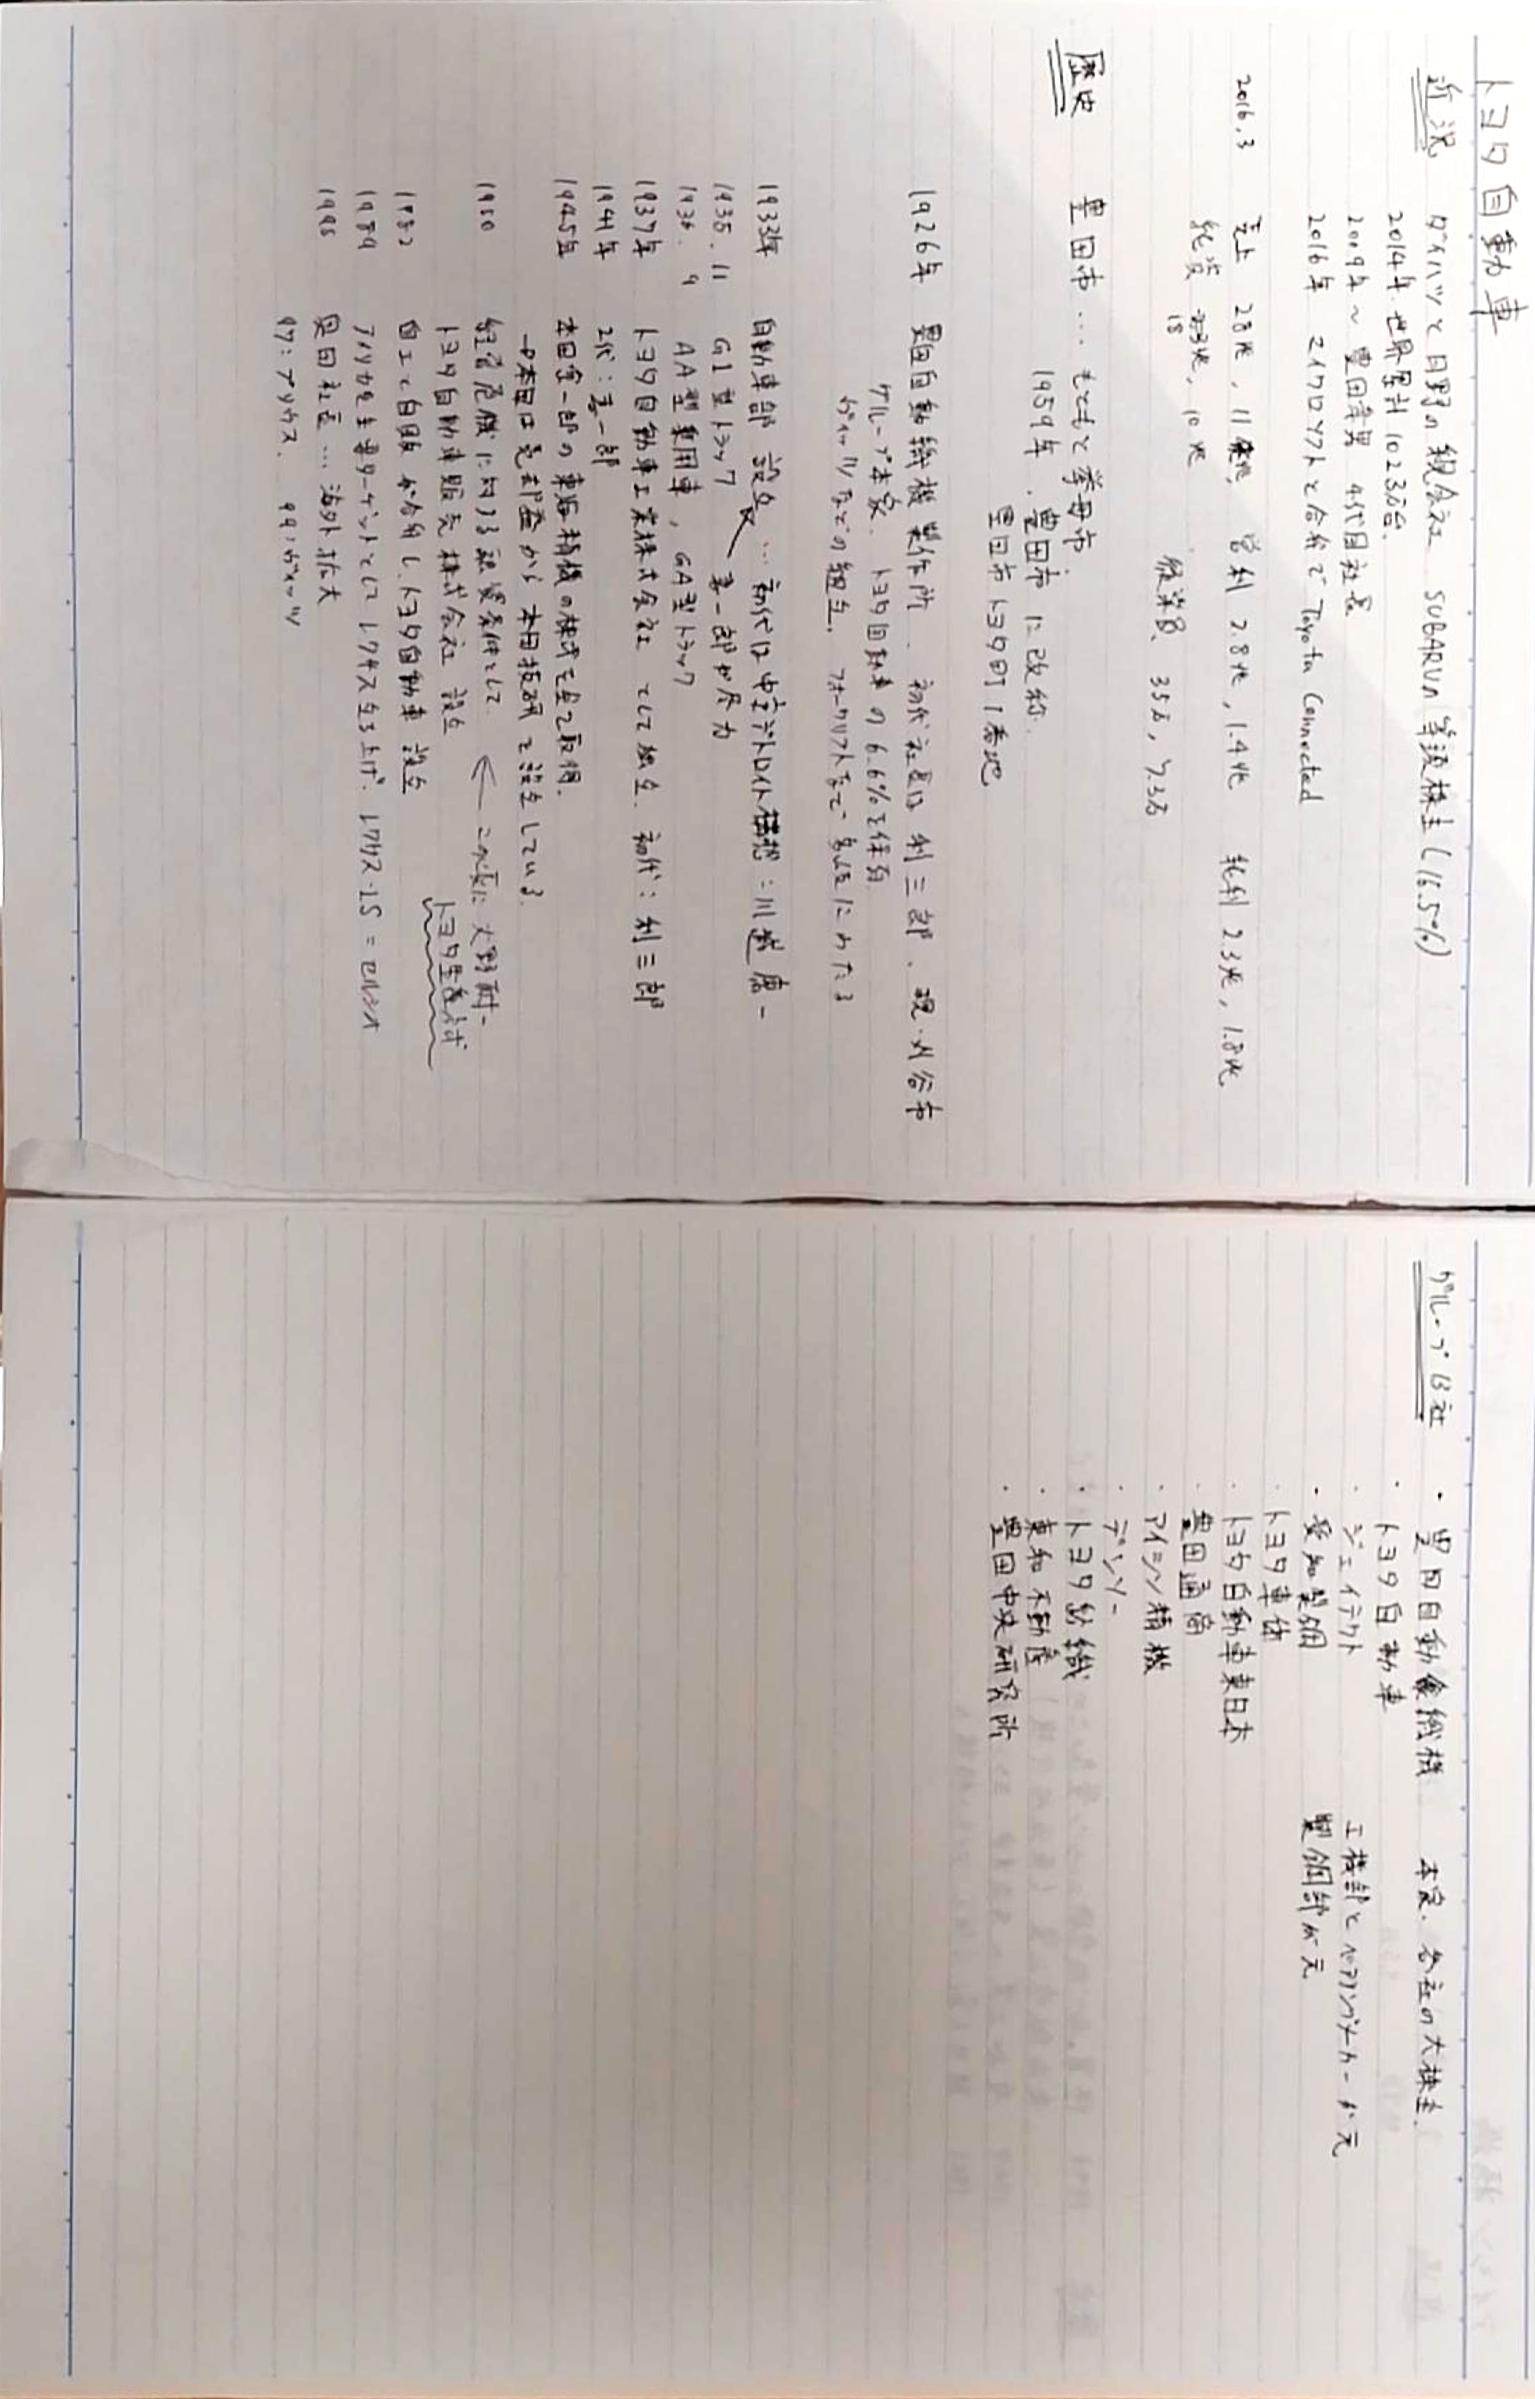 トヨタ自動車
近況 ダイハツと日野の親会社 SUBARUの筆頭株主(16.5%)
2014年 世界累計 1023万台.
2009年～ 豊田章男 4代目社長
2016年 マイクロソフトと合弁で Toyota Connected
2016.3 売上 28兆, 11兆, 営利 2.8兆, 1.4兆 純利 2.3兆, 1.8兆
純資 18兆, 10兆
従業員、35万, 7.3万
歴史 豊田市 … もともと挙母市.
1959年. 豊田市に改称.
豊田市トヨタ町1番地
1926年 豊田自動織機製作所. 初代社長は利三郎. 現・刈谷市
グループ本家. トヨタ自動車の6.6%を保有
ヴィッツなどの組立. フォークリフトなど多岐にわたる
1933年 自動車部 設立 … 初代は中京デトロイト構想:川越庸一
1935.11 G1型トラック 喜一郎が尽力
1936.9 AA型乗用車, GA型トラック
1937年 トヨタ自動車工業株式会社 として独立. 初代:利三郎
1941年 2代:喜一郎
1945年 本田宗一郎の東海精機の株式を全て取得.
→本田は売却益から本田技研を設立している.
1950 経営危機に対する融資条件として ← この頃に 大野耐一
トヨタ自動車販売株式会社 設立 トヨタ生産方式
1982 自工と自販が合併し、トヨタ自動車 設立
1989 アメリカを主要ターゲットとしてレクサス立ち上げ. レクサス・LS = セルシオ
1995 奥田社長 … 海外拡大
97:プリウス. 99:ヴィッツ
グループ13社 ・豊田自動織機 本家. 各社の大株主.
・トヨタ自動車
・ジェイテクト 工機部とベアリングメーカーが元
・愛知製鋼 製鋼部が元
・トヨタ車体
・トヨタ自動車東日本
・豊田通商
・アイシン精機
・デンソー
・トヨタ紡織
・東和不動産
・豊田中央研究所